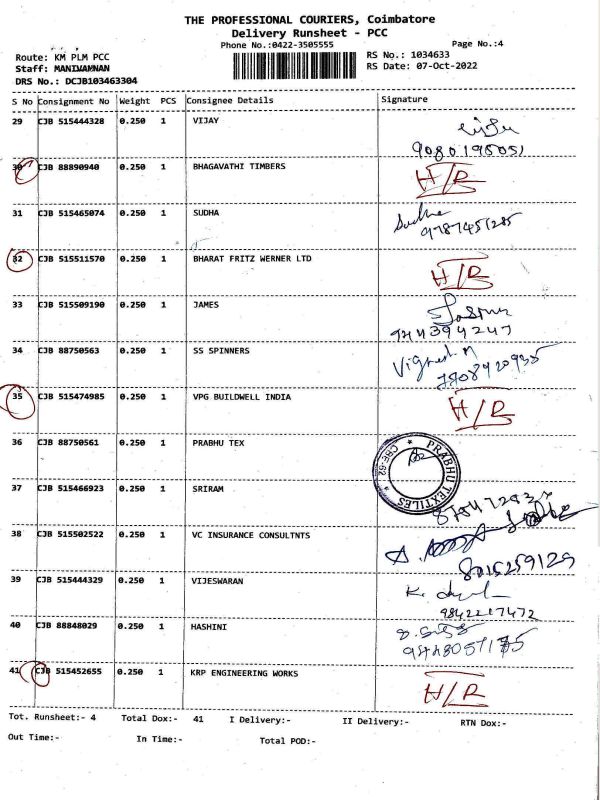 THE PROFESSIONAL COURIERS, Coimbatore
Delivery Runsheet - PCC
Phone No.:0422-3505555
Page No.:4
Route: KM PLM PCC
RS No.: 1034633
Staff: MANIVANNAN
RS Date: 07-Oct-2022
DRS No.: DCJB103463304
S No Consignment No Weight PCS Consignee Details Signature
29 CJB 515444328 0.250 1 VIJAY
9080195051
30 CJB 88890940 0.250 1 BHAGAVATHI TIMBERS H/R
31 CJB 515465074 0.250 1 SUDHA Sudha
9787451285
32 CJB 515511570 0.250 1 BHARAT FRITZ WERNER LTD H/R
33 CJB 515509190 0.250 1 JAMES
944394247
34 CJB 88750563 0.250 1 SS SPINNERS Vignesh. M
35 CJB 515474985 0.250 1 VPG BUILDWELL INDIA H/R
36 CJB 88750561 0.250 1 PRABHU TEX PRABHU TEXTILES CBE-62
37 CJB 515466923 0.250 1 SRIRAM
38 CJB 515502522 0.250 1 VC INSURANCE CONSULTNTS
8015259129
39 CJB 515444329 0.250 1 VIJESWARAN
9842217472
40 CJB 88848029 0.250 1 HASHINI
41 CJB 515452655 0.250 1 KRP ENGINEERING WORKS H/R
Tot. Runsheet:- 4 Total Dox:- 41 I Delivery:- II Delivery:- RTN Dox:-
Out Time:- In Time:- Total POD:-